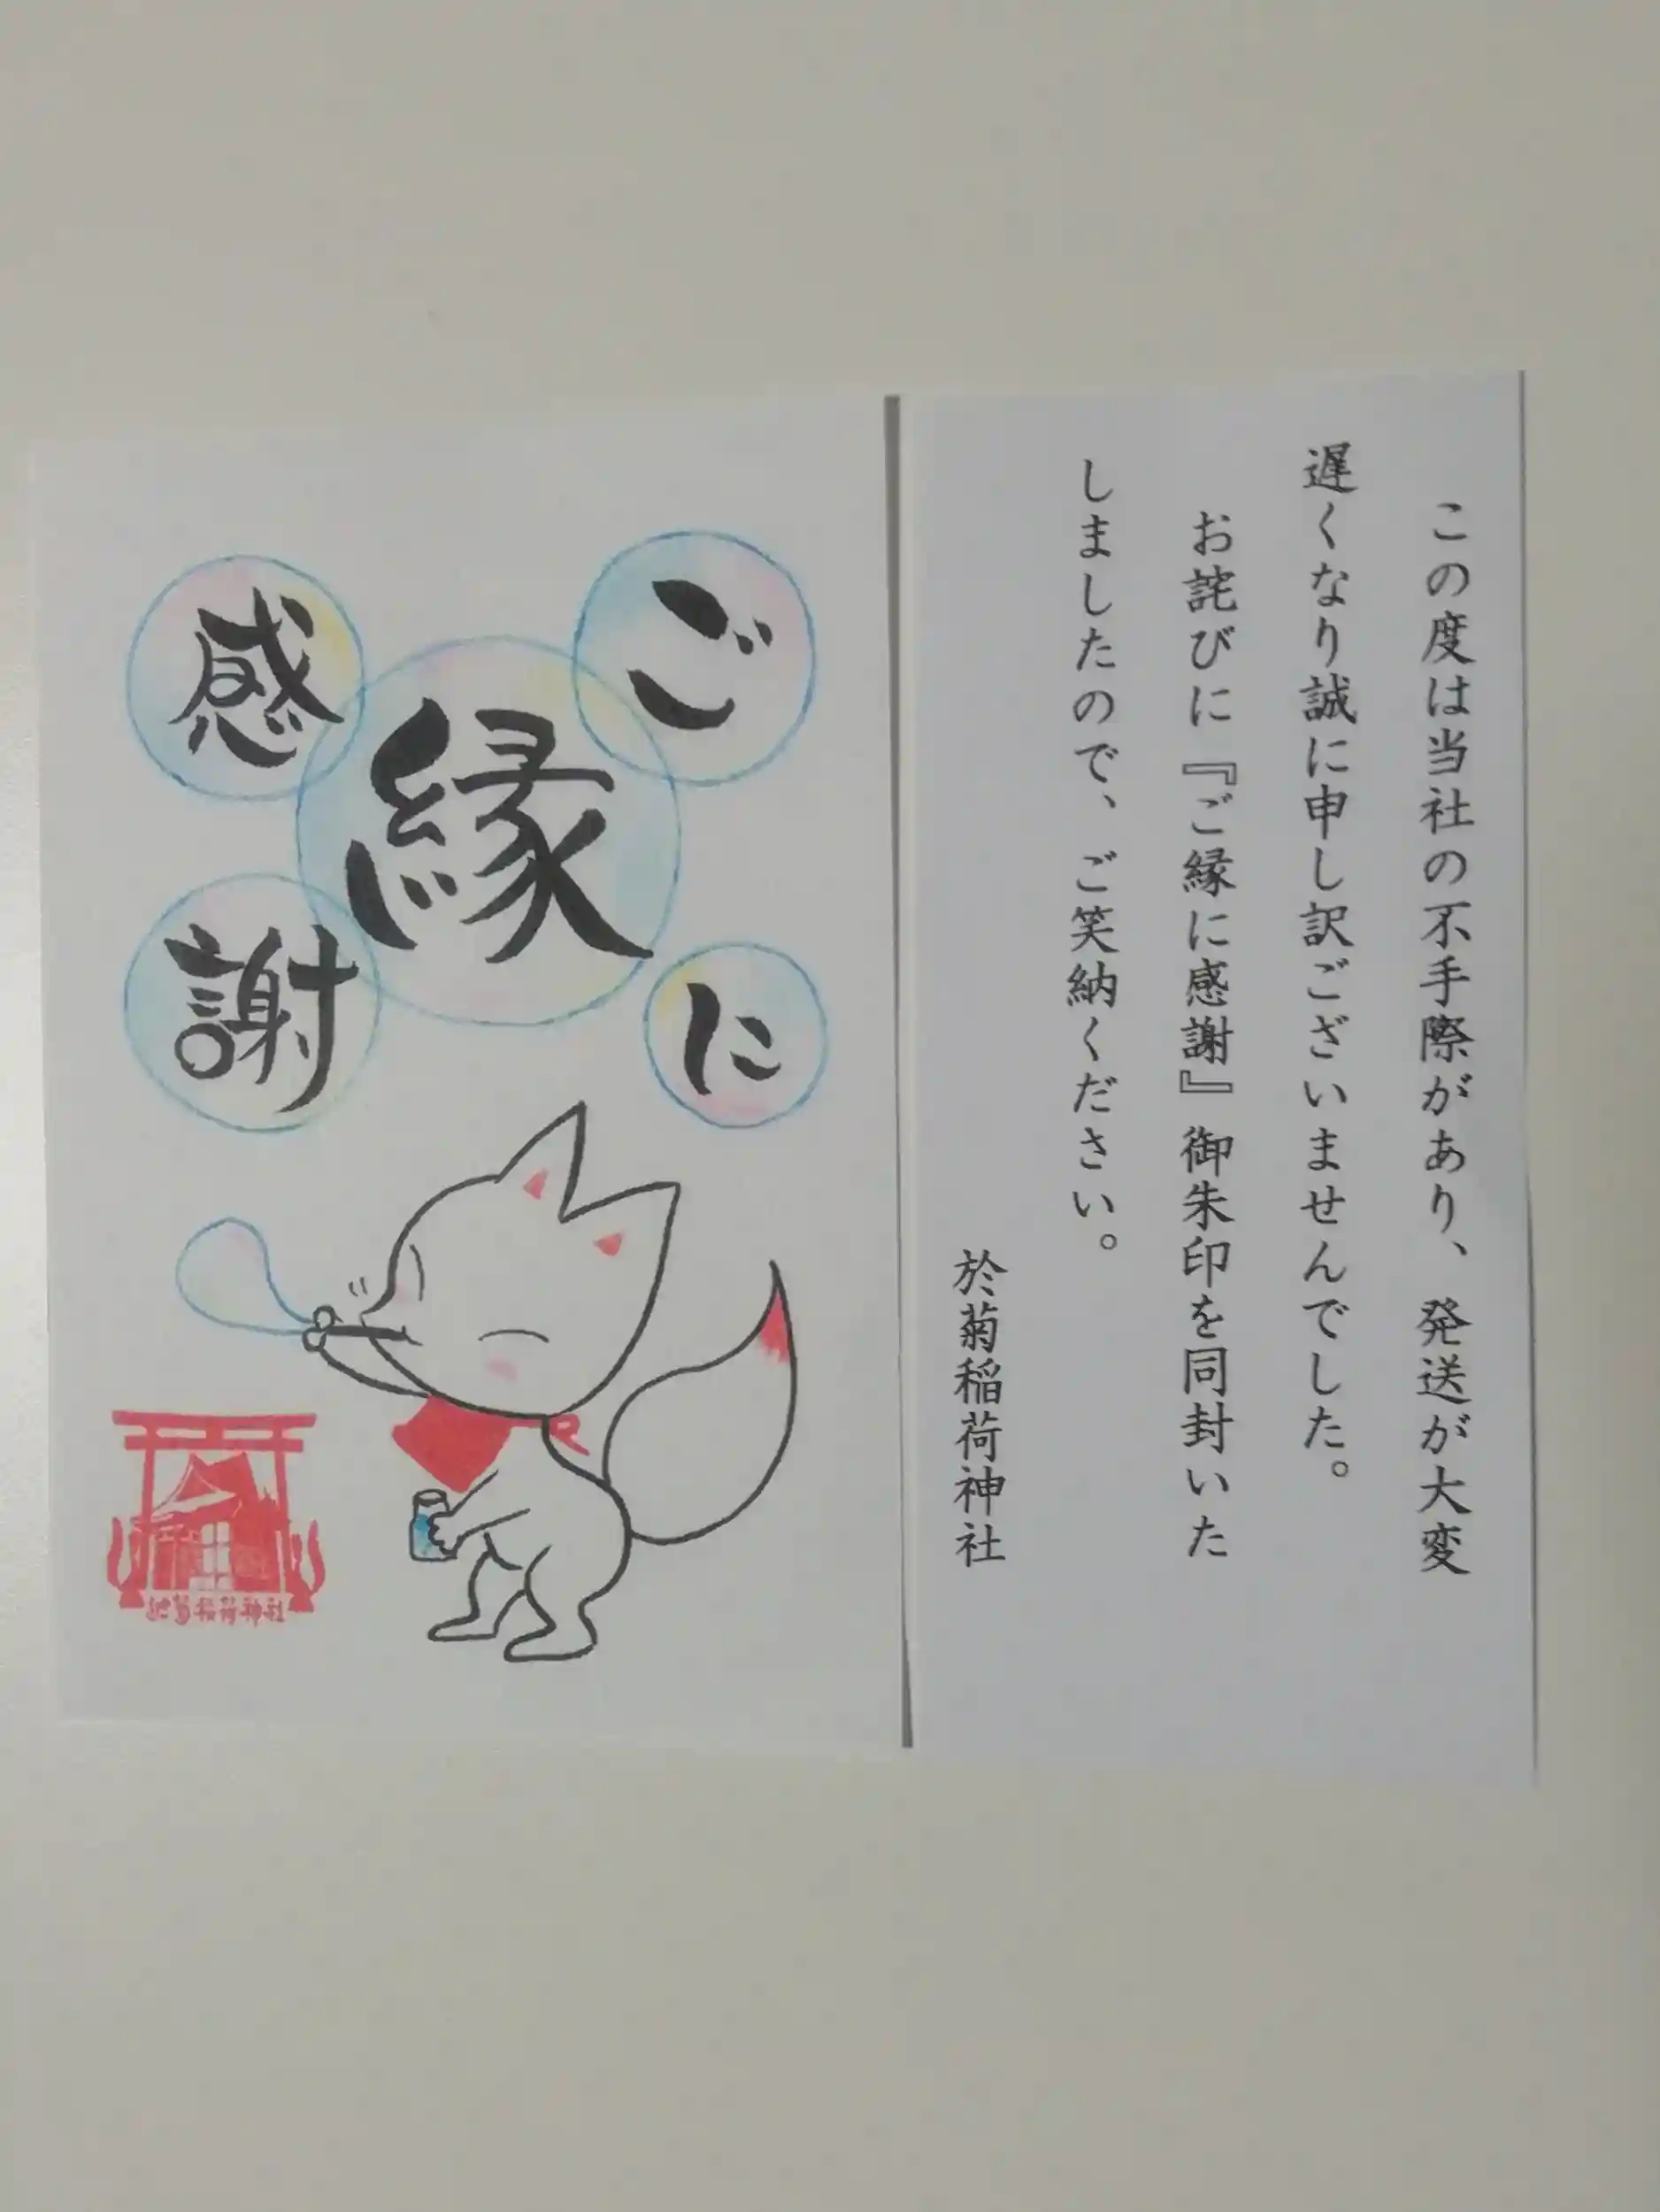 この度は当社の不手際があり、発送が大変
遅くなり誠に申し訳ございませんでした。
お詫びに『ご縁に感謝』御朱印を同封いた
しましたので、ご笑納ください。
於菊稲荷神社
ご
縁
に
感
謝
於菊稲荷神社